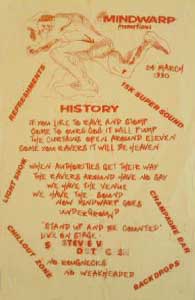 MINDWARP
PROMOTIONS
24 MARCH
1990
REFRESHMENTS
15K SUPER SOUND
HISTORY
IF YOU LIKE TO RAVE AND STOMP
COME TO OURS COS IT WILL PUMP
THE CURTAINS OPEN AROUND ELEVEN
COME YOU RAVERS IT WILL BE HEAVEN
LIGHT SHOW
WHEN AUTHORITIES GET THEIR WAY
THE RAVERS AROUND HAVE NO SAY
WE HAVE THE VENUE
WE HAVE THE SOUND
NOW MINDWARP GOES
UNDERGROUND
CHAMPAGNE BAR
'STAND UP AND BE COUNTED'
LIVE ON STAGE
STEVE V
CHILLOUT ZONE
NO ROUGHNECKS
NO WEAKHEADED
BACKDROPS